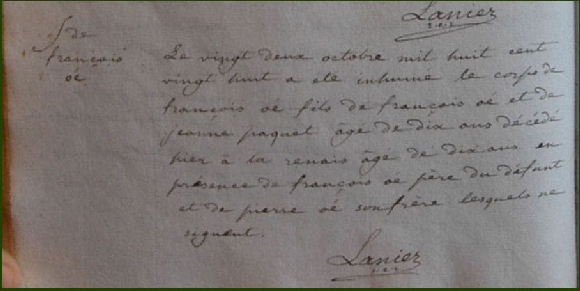 Lanier
S de
françois
oé
Le vingt deux octobre mil huit cent
vingt huit a eté inhumé le corps de
françois oé fils de françois oé et de
jeanne paquet âgé de dix ans décédé
hier à la renais âgé de dix ans en
présence de françois oé père du défunt
et de pierre oé son frère lesquels ne
signent.
Lanier